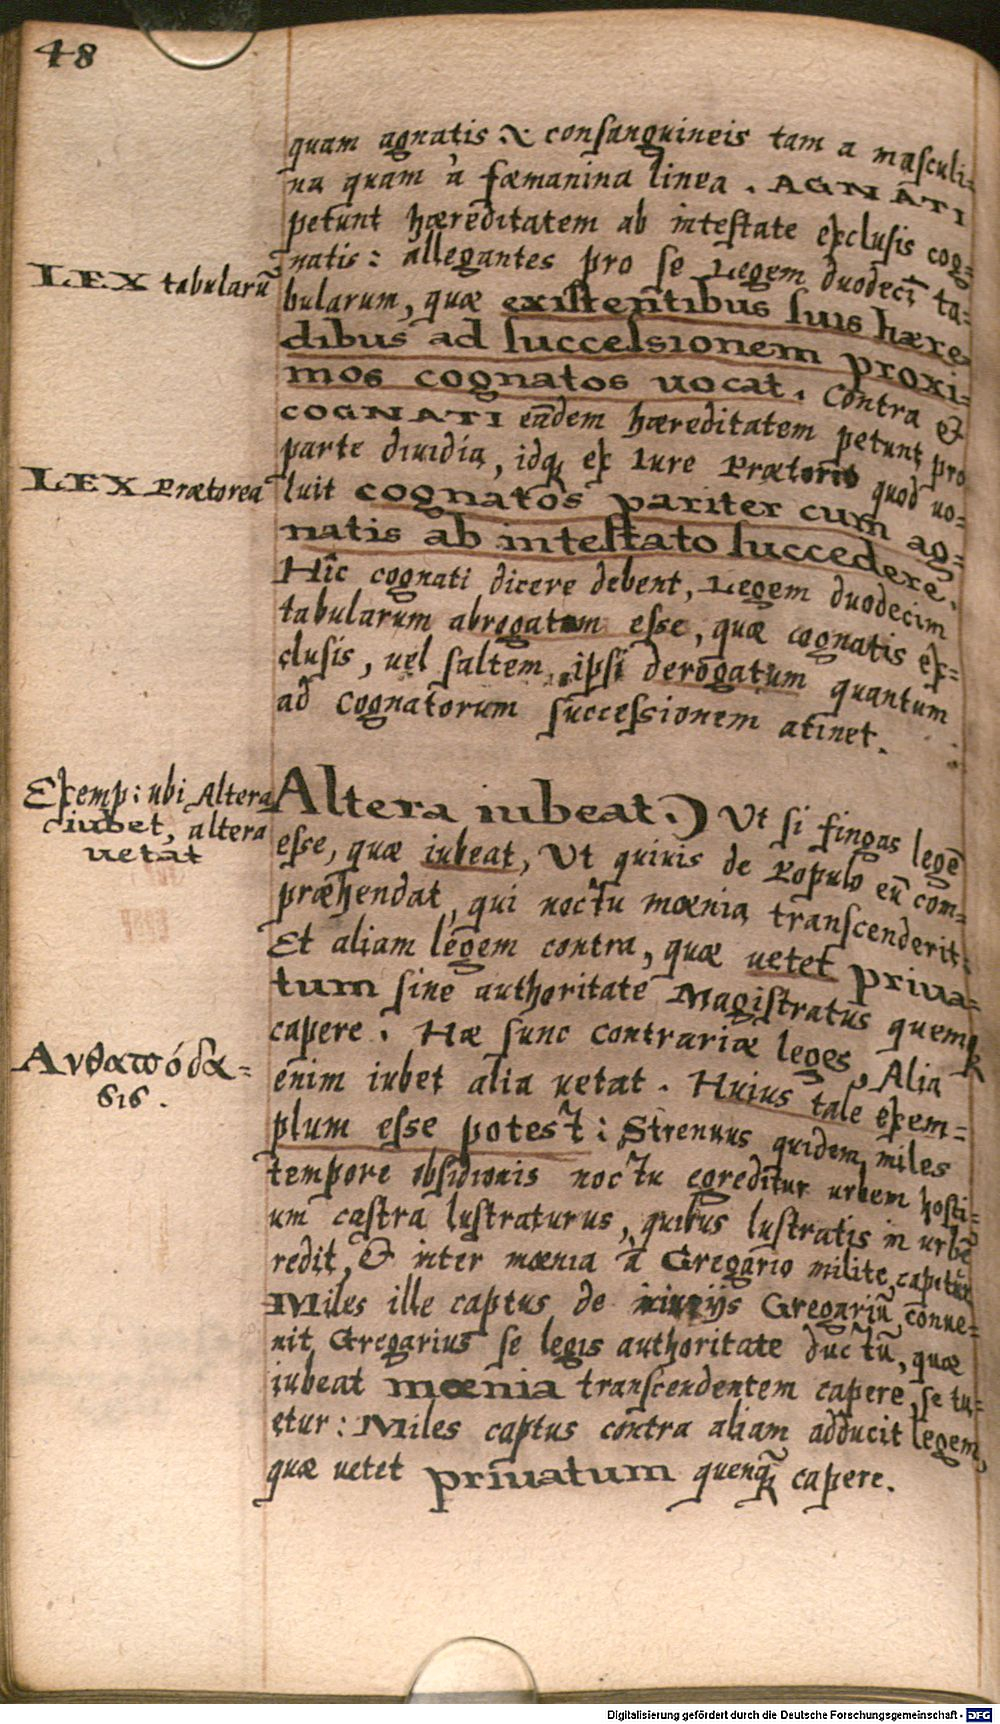 48
quam agnatis & consanguineis tam a masculi-
na quam à fæmanina linea. AGNATI
petunt hæreditatem ab intestate exclusis cog-
natis: allegantes pro se Legem duodecĩ ta-
LEX tabularũ
bularum, quæ existentibus suis hære-
dibus ad successionem proxi-
mos cognatos uocat. Contra et
COGNATI eãdem hæreditatem petunt pro
parte diuidia, idq ex Iure Prætorio quod uo-
LEX Prætorea
luit cognatos pariter cum ag-
natis ab intestato succedere.
Hîc cognati dicere debent, Legem duodecim
tabularum abrogatam esse, quæ cognatis ex-
clusis, uel saltem ipsi derogatum quantum
ad Cognatorum successionem atinet.
Exemp: ubi Altera
iubet, altera
uetat
Altera iubeat.) Ut si fingas legẽ
esse, quæ iubeat, Ut quiuis de Populo eũ com-
præhendat, qui noctu mœnia transcenderit:
Et aliam legem contra, quæ uetet priua-
tum sine authoritate Magistratus quemq
capere. Hæ sunc contrariæ leges, Alia
Ανθαπόδα-
σισ.
enim iubet alia uetat. Huius tale exem-
plum esse potest: Strenuus quidem miles
tempore obsidionis noctu egreditur urbem hosti-
um castra lustraturus, quibus lustratis in urbẽ
redit, & inter mœnia à Gregario milite capitur
Miles ille captus de iniurijs Gregariũ conue-
nit, Gregarius se legis authoritate ductũ, quæ
iubeat mœnia transcendentem capere, se tu-
etur: Miles captus contra aliam adducit legem,
quæ uetet priuatum quenq capere.
Digitalisierung gefördert durch die Deutsche Forschungsgemeinschaft - DFG